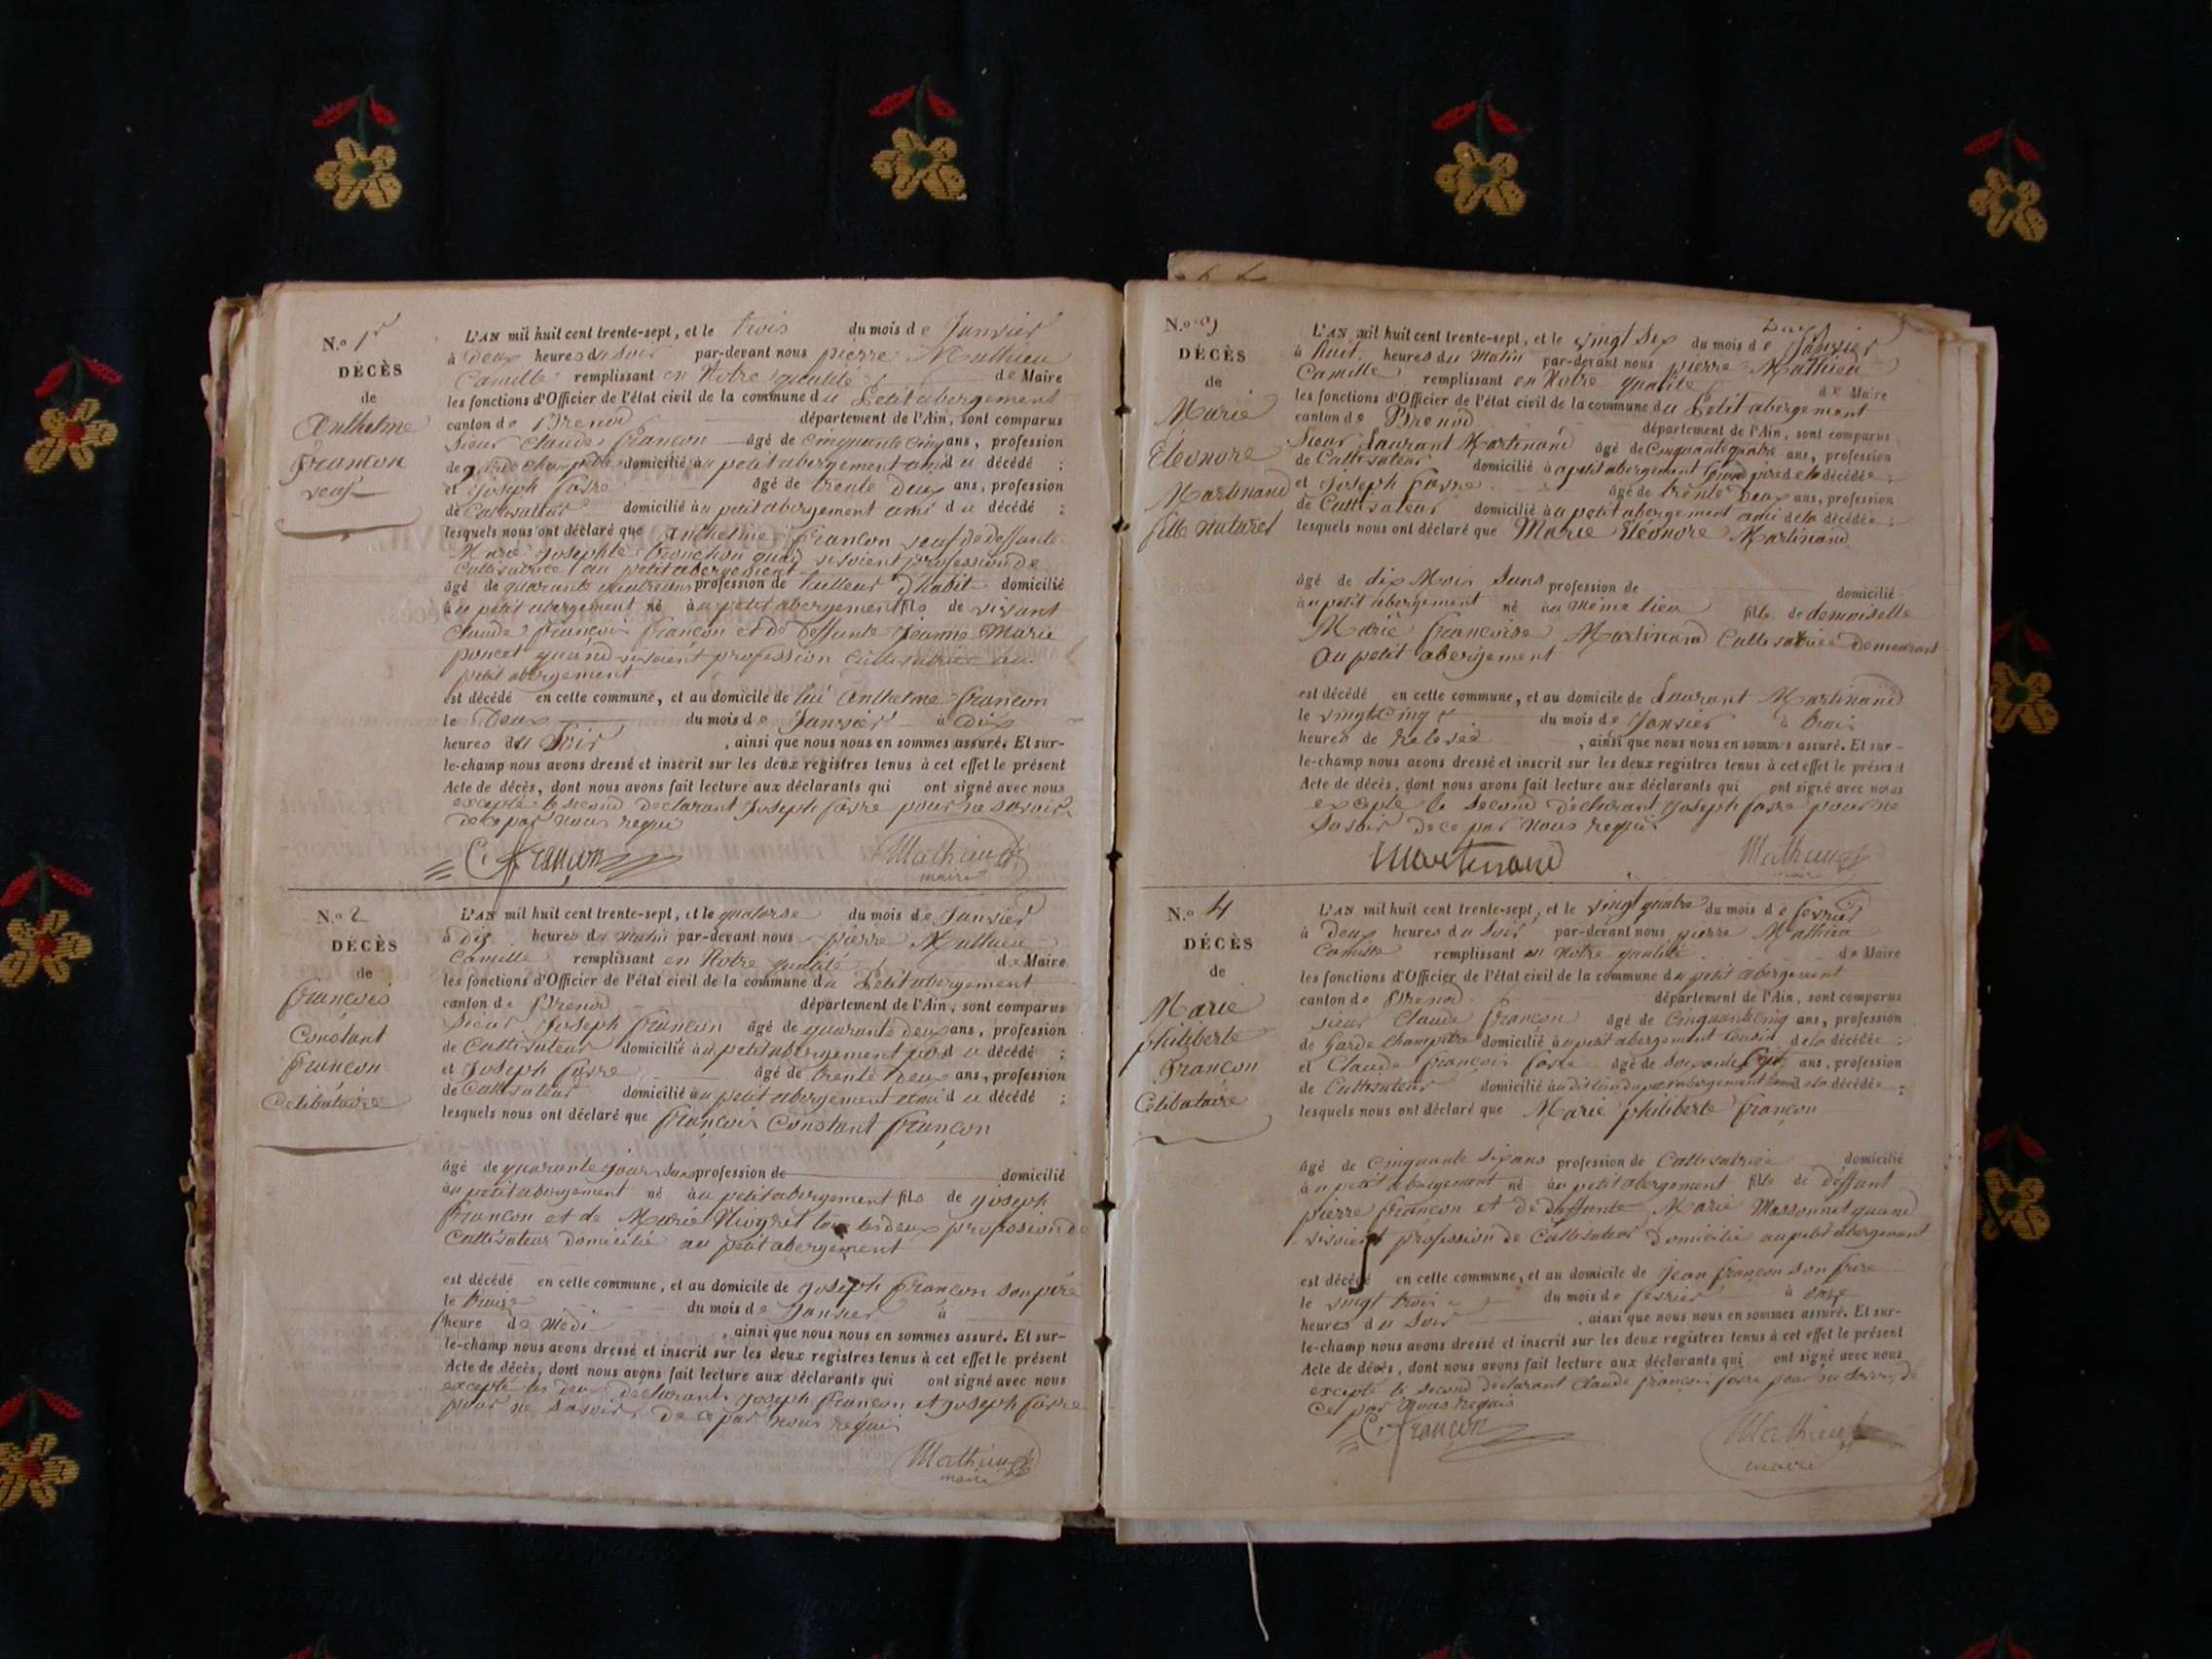 N.o 1r
DÉCÈS
de
Anthelme
françon
veuf
L'AN mil huit cent trente-sept, et le trois du mois de Janvier
à Deux heures du soir par-devant nous pierre Mathieu
Camille remplissant en Notre qualité de Maire
les fonctions d'Officier de l'état civil de la commune du Petit abergement
canton de Brenod département de l'Ain, sont comparus
Sieur Claude françon âgé de cinquante cinq ans, profession
de garde champêtre domicilié au petit abergement ami du décédé ;
et Joseph favre âgé de trente Deux ans, profession
de Cultivateur domicilié au petit abergement ami du décédé ;
lesquels nous ont déclaré que anthelme françon veuf de deffunte
Marie Josephte quand vivoient profession de
Cultivatrice au petit abergement
âgé de quarante quatre ans profession de tailleur d'habit domicilié
au petit abergement né au petit abergement fils de vivant
Claude françois françon et de Deffunte Jeanne Marie
poncet quand vivoient profession Cultivatrice au
petit abergement
est décédé en cette commune, et au domicile de lui anthelme françon
le Deux du mois de Janvier à Dix
heures du Soir , ainsi que nous nous en sommes assuré. Et sur-
le-champ nous avons dressé et inscrit sur les deux registres tenus à cet effet le présent
Acte de décès, dont nous avons fait lecture aux déclarants qui ont signé avec nous
excepté le second declarant Joseph favre pour ne savoir
de ce par nous requi
C. françon Mathieu
maire
N.o 2
DÉCÈS
de
françois
Constant
françon
Célibataire
L'AN mil huit cent trente-sept, et le quatorse du mois de Janvier
à dix heures du matin par-devant nous pierre Mathieu
Camille remplissant en Notre qualité de Maire
les fonctions d'Officier de l'état civil de la commune du Petit abergement
canton de Brenod département de l'Ain, sont comparus
Sieur Joseph françon âgé de quarante deux ans, profession
de Cultivateur domicilié au petit abergement père du décédé ;
et Joseph favre âgé de trente Deux ans, profession
de Cultivateur domicilié au petit abergement ami du décédé ;
lesquels nous ont déclaré que françois Constant françon
âgé de quarante jours sans profession de domicilié
au petit abergement né au petit abergement fils de joseph
françon et de Marie Niogret tous les deux profession de
Cultivateur domicilié au petit abergement
est décédé en cette commune, et au domicile de joseph françon son père
le treise du mois de Janvier à
heure de Medi , ainsi que nous nous en sommes assuré. Et sur-
le-champ nous avons dressé et inscrit sur les deux registres tenus à cet effet le présent
Acte de décès, dont nous avons fait lecture aux déclarants qui ont signé avec nous
excepté les deux declarants joseph françon et joseph favre
pour ne savoir de ce par nous requi
Mathieu
maire
N.o 3
DÉCÈS
de
Marie
Eléonore
Martinand
fille naturel
L'AN mil huit cent trente-sept, et le vingt six du mois de Janvier
à huit heures du Matin par-devant nous pierre Mathieu
Camille remplissant en Notre qualité de Maire
les fonctions d'Officier de l'état civil de la commune du Petit abergement
canton de Brenod département de l'Ain, sont comparus
Sieur Laurant Martinand âgé de Cinquante quatre ans, profession
de Cultivateur domicilié a petit abergement grand père de la décédée ;
et Joseph favre âgé de trente Deux ans, profession
de Cultivateur domicilié au petit abergement ami de la décédée ;
lesquels nous ont déclaré que Marie Eléonore Martinand
âgé de dix Mois Sans profession de domicilié
au petit abergement né au même lieu fille de demoiselle
Marie françoise Martinand Cultivatrice Demeurant
au petit abergement
est décédé en cette commune, et au domicile de Laurant Martinand
le vingt Cinq du mois de Janvier à trois
heures de relevée , ainsi que nous nous en sommes assuré. Et sur-
le-champ nous avons dressé et inscrit sur les deux registres tenus à cet effet le présent
Acte de décès, dont nous avons fait lecture aux déclarants qui ont signé avec nous
excepté le Second déclarant joseph favre pour ne
savoir de ce par nous requis
Martinand Mathieu
N.o 4
DÉCÈS
de
Marie
philiberte
françon
Célibataire
L'AN mil huit cent trente-sept, et le vingt quatre du mois de fevrier
à Deux heures du Soir par-devant nous pierre Mathieu
Camille remplissant en Notre qualité de Maire
les fonctions d'Officier de l'état civil de la commune du petit abergement
canton de Brenod département de l'Ain, sont comparus
sieur Claude françon âgé de Cinquante Cinq ans, profession
de garde champêtre domicilié au petit abergement Cousin de la décédée ;
et Claude françois favre âgé de Soixante Sept ans, profession
de Cultivateur domicilié au dit lieu du petit abergement ami de la décédée ;
lesquels nous ont déclaré que Marie philiberte françon
âgé de Cinquante Six ans profession de Cultivatrice domicilié
au petit abergement né au petit abergement fille de deffunt
pierre françon et de deffunte Marie Massonnet quand
vivoient profession de Cultivateur Domicilié au petit abergement
est décédé en cette commune, et au domicile de jean françon Son frere
le vingt trois du mois de fevrier à onze
heures du Soir , ainsi que nous nous en sommes assuré. Et sur-
le-champ nous avons dressé et inscrit sur les deux registres tenus à cet effet le présent
Acte de décès, dont nous avons fait lecture aux déclarants qui ont signé avec nous
excepté le Second déclarant Claude françois favre pour ne savoir de
Ce par Nous requis
C. françon Mathieu
maire